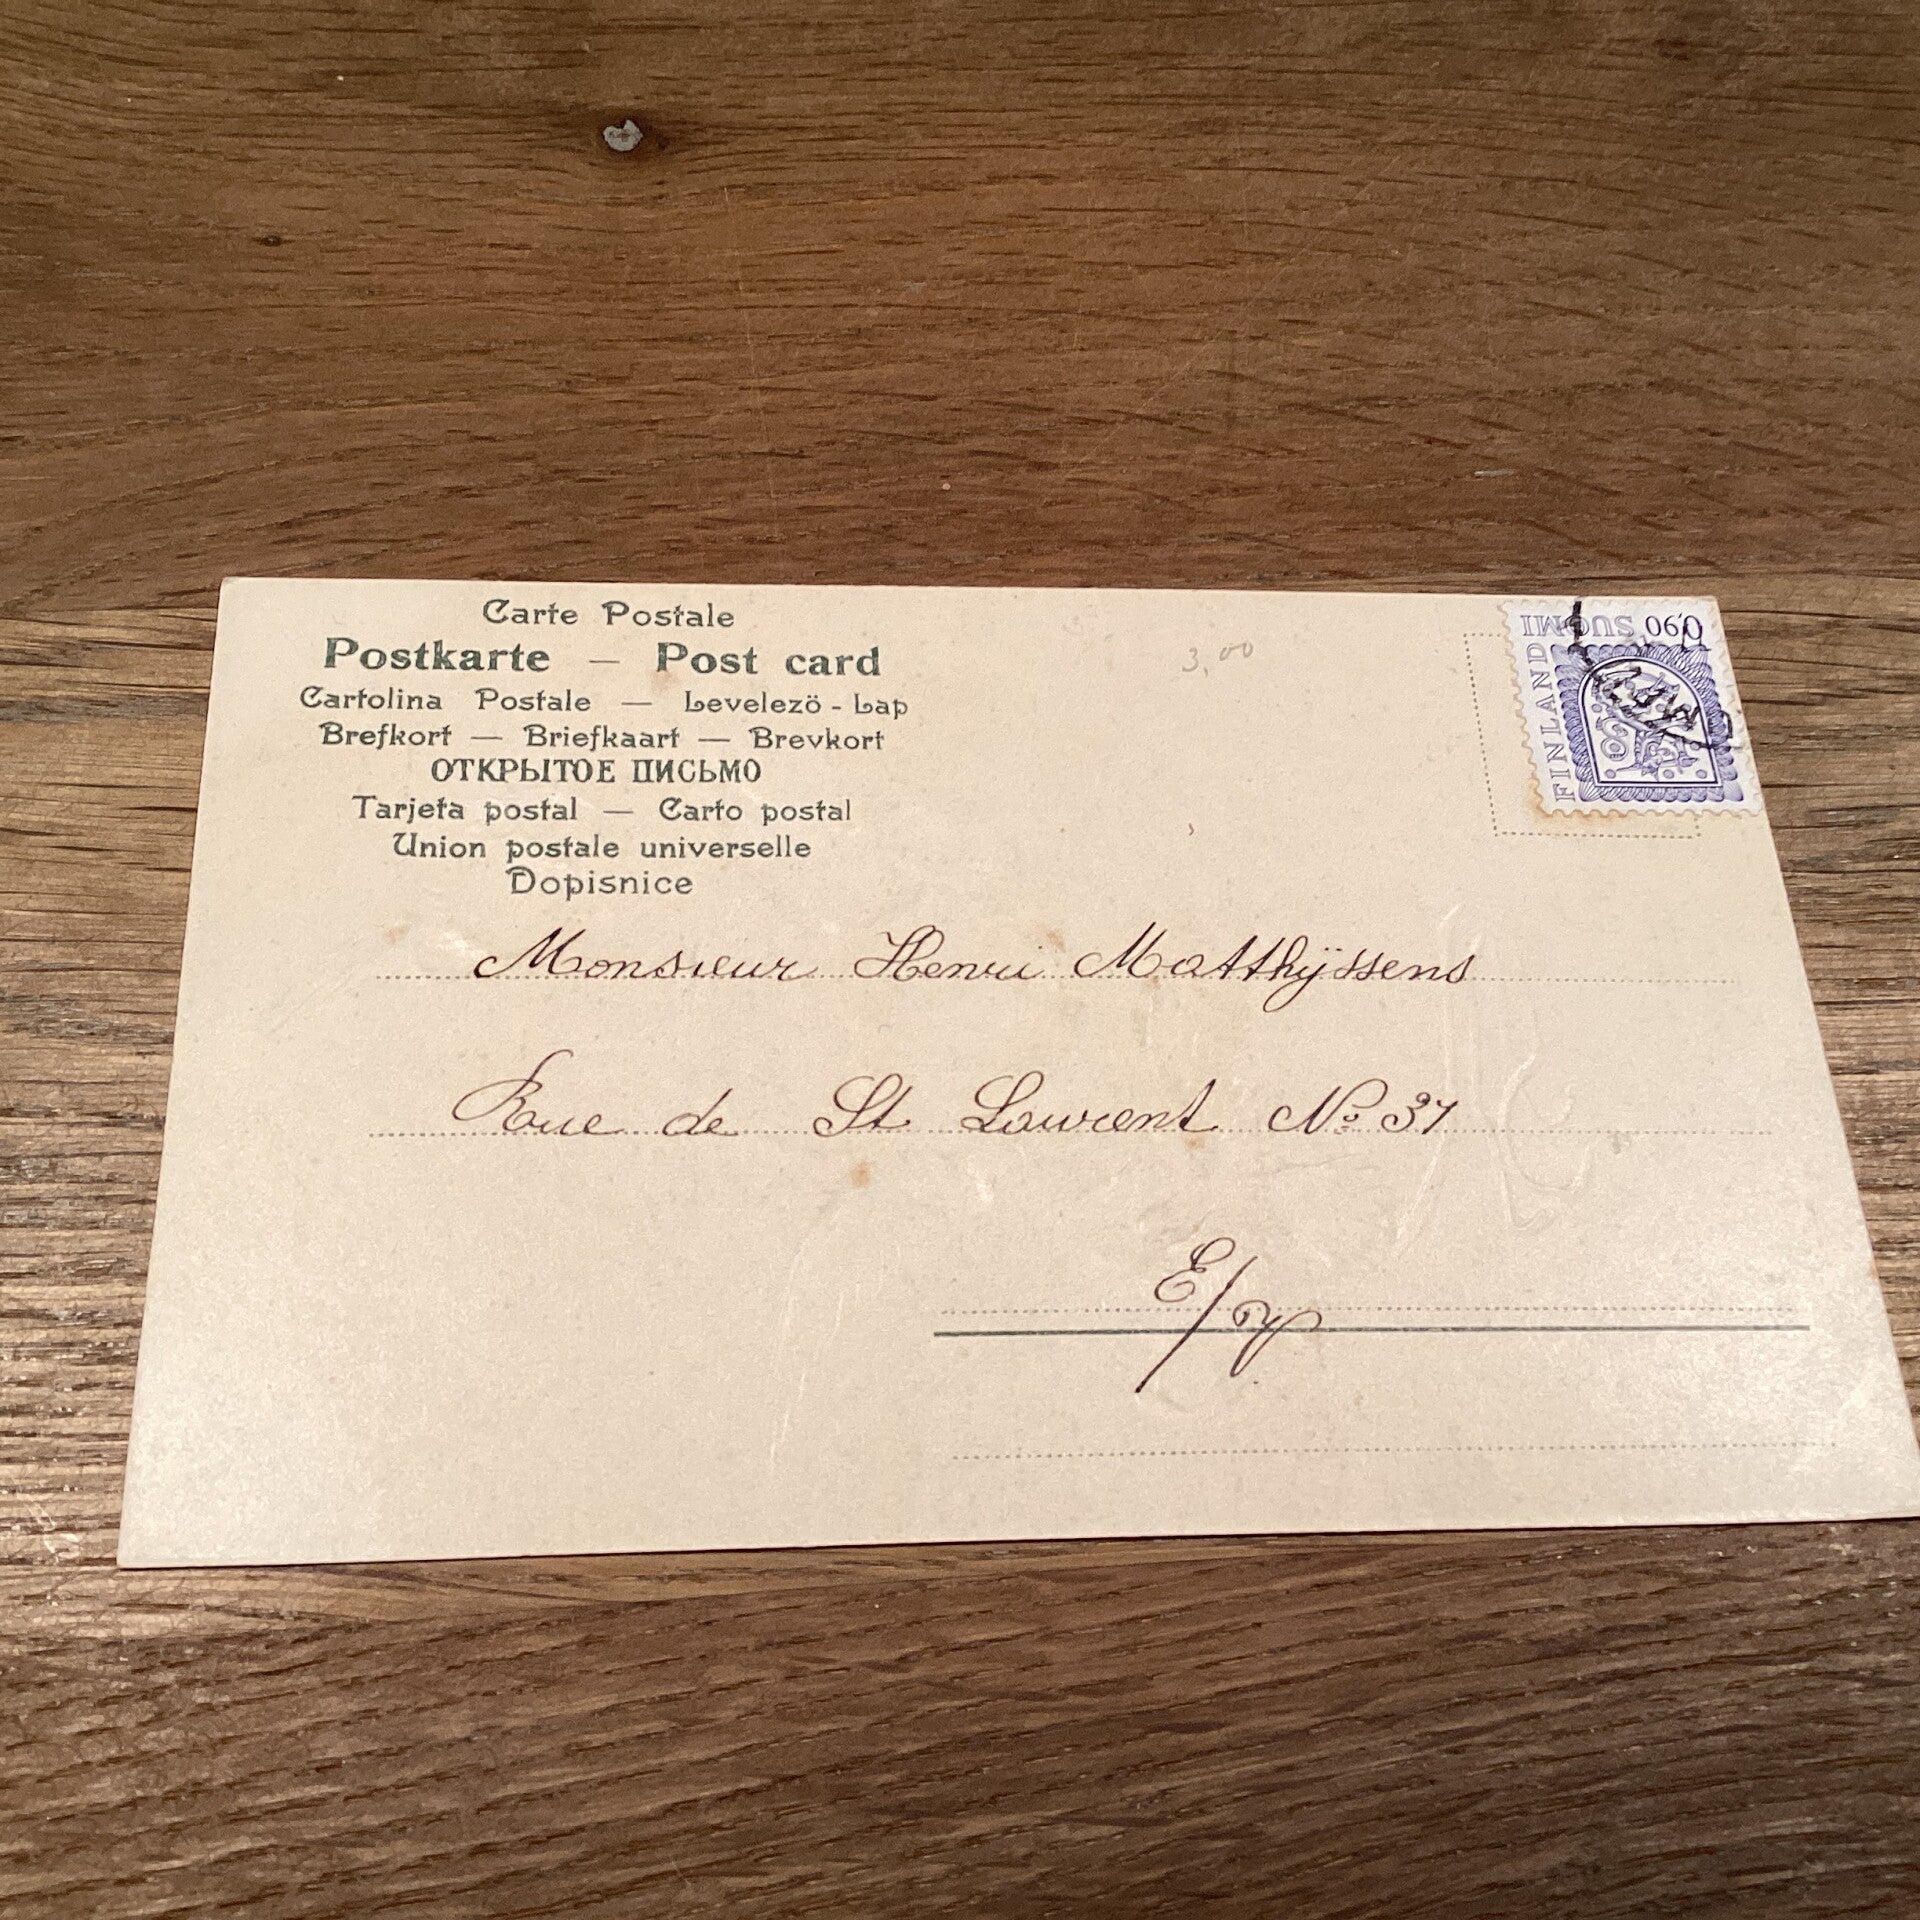 Carte Postale
Postkarte — Post card
Cartolina Postale — Levelezö - Lap
Brefkort — Briefkaart — Brevkort
ОТКРЫТОЕ ПИСЬМО
Tarjeta postal — Carto postal
Union postale universelle
Dopisnice
3,00
SUOMI 0,90
FINLAND
Monsieur Henri Matthÿssens
Rue de St Laurent No 37
E/V